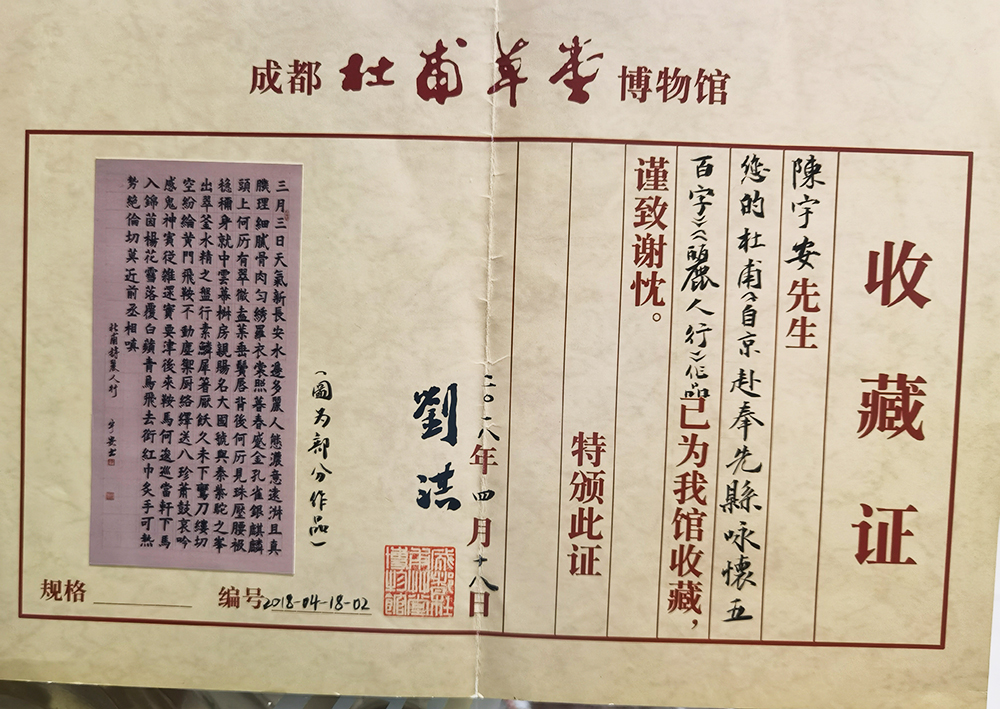 成都杜甫草堂博物馆
收藏证
陳宇安先生
您的杜甫《自京赴奉先縣咏懷五
百字》《麗人行》作品已为我馆收藏，
谨致谢忱。
特颁此证
二〇一八年四月十八日
劉洁
成都杜甫草堂博物館
（圖为部分作品）
三月三日天氣新長安水邊多麗人態濃意遠淑且真
肌理細膩骨肉匀綉羅衣裳照暮春蹙金孔雀銀麒麟
頭上何所有翠微盍葉垂鬢唇背後何所見珠壓腰衱
穩稱身就中雲幕椒房親賜名大國虢與秦紫駝之峯
出翠釜水精之盤行素鱗犀箸厭飫久未下鸞刀縷切
空紛綸黄門飛鞚不動塵御厨絡繹送八珍簫鼓哀吟
感鬼神賓從雜遝實要津後來鞍馬何逡巡當軒下馬
入錦茵楊花雪落覆白蘋青鳥飛去銜紅巾炙手可熱
勢絶倫切莫近前丞相嗔
杜甫詩麗人行
规格
编号2018-04-18-02